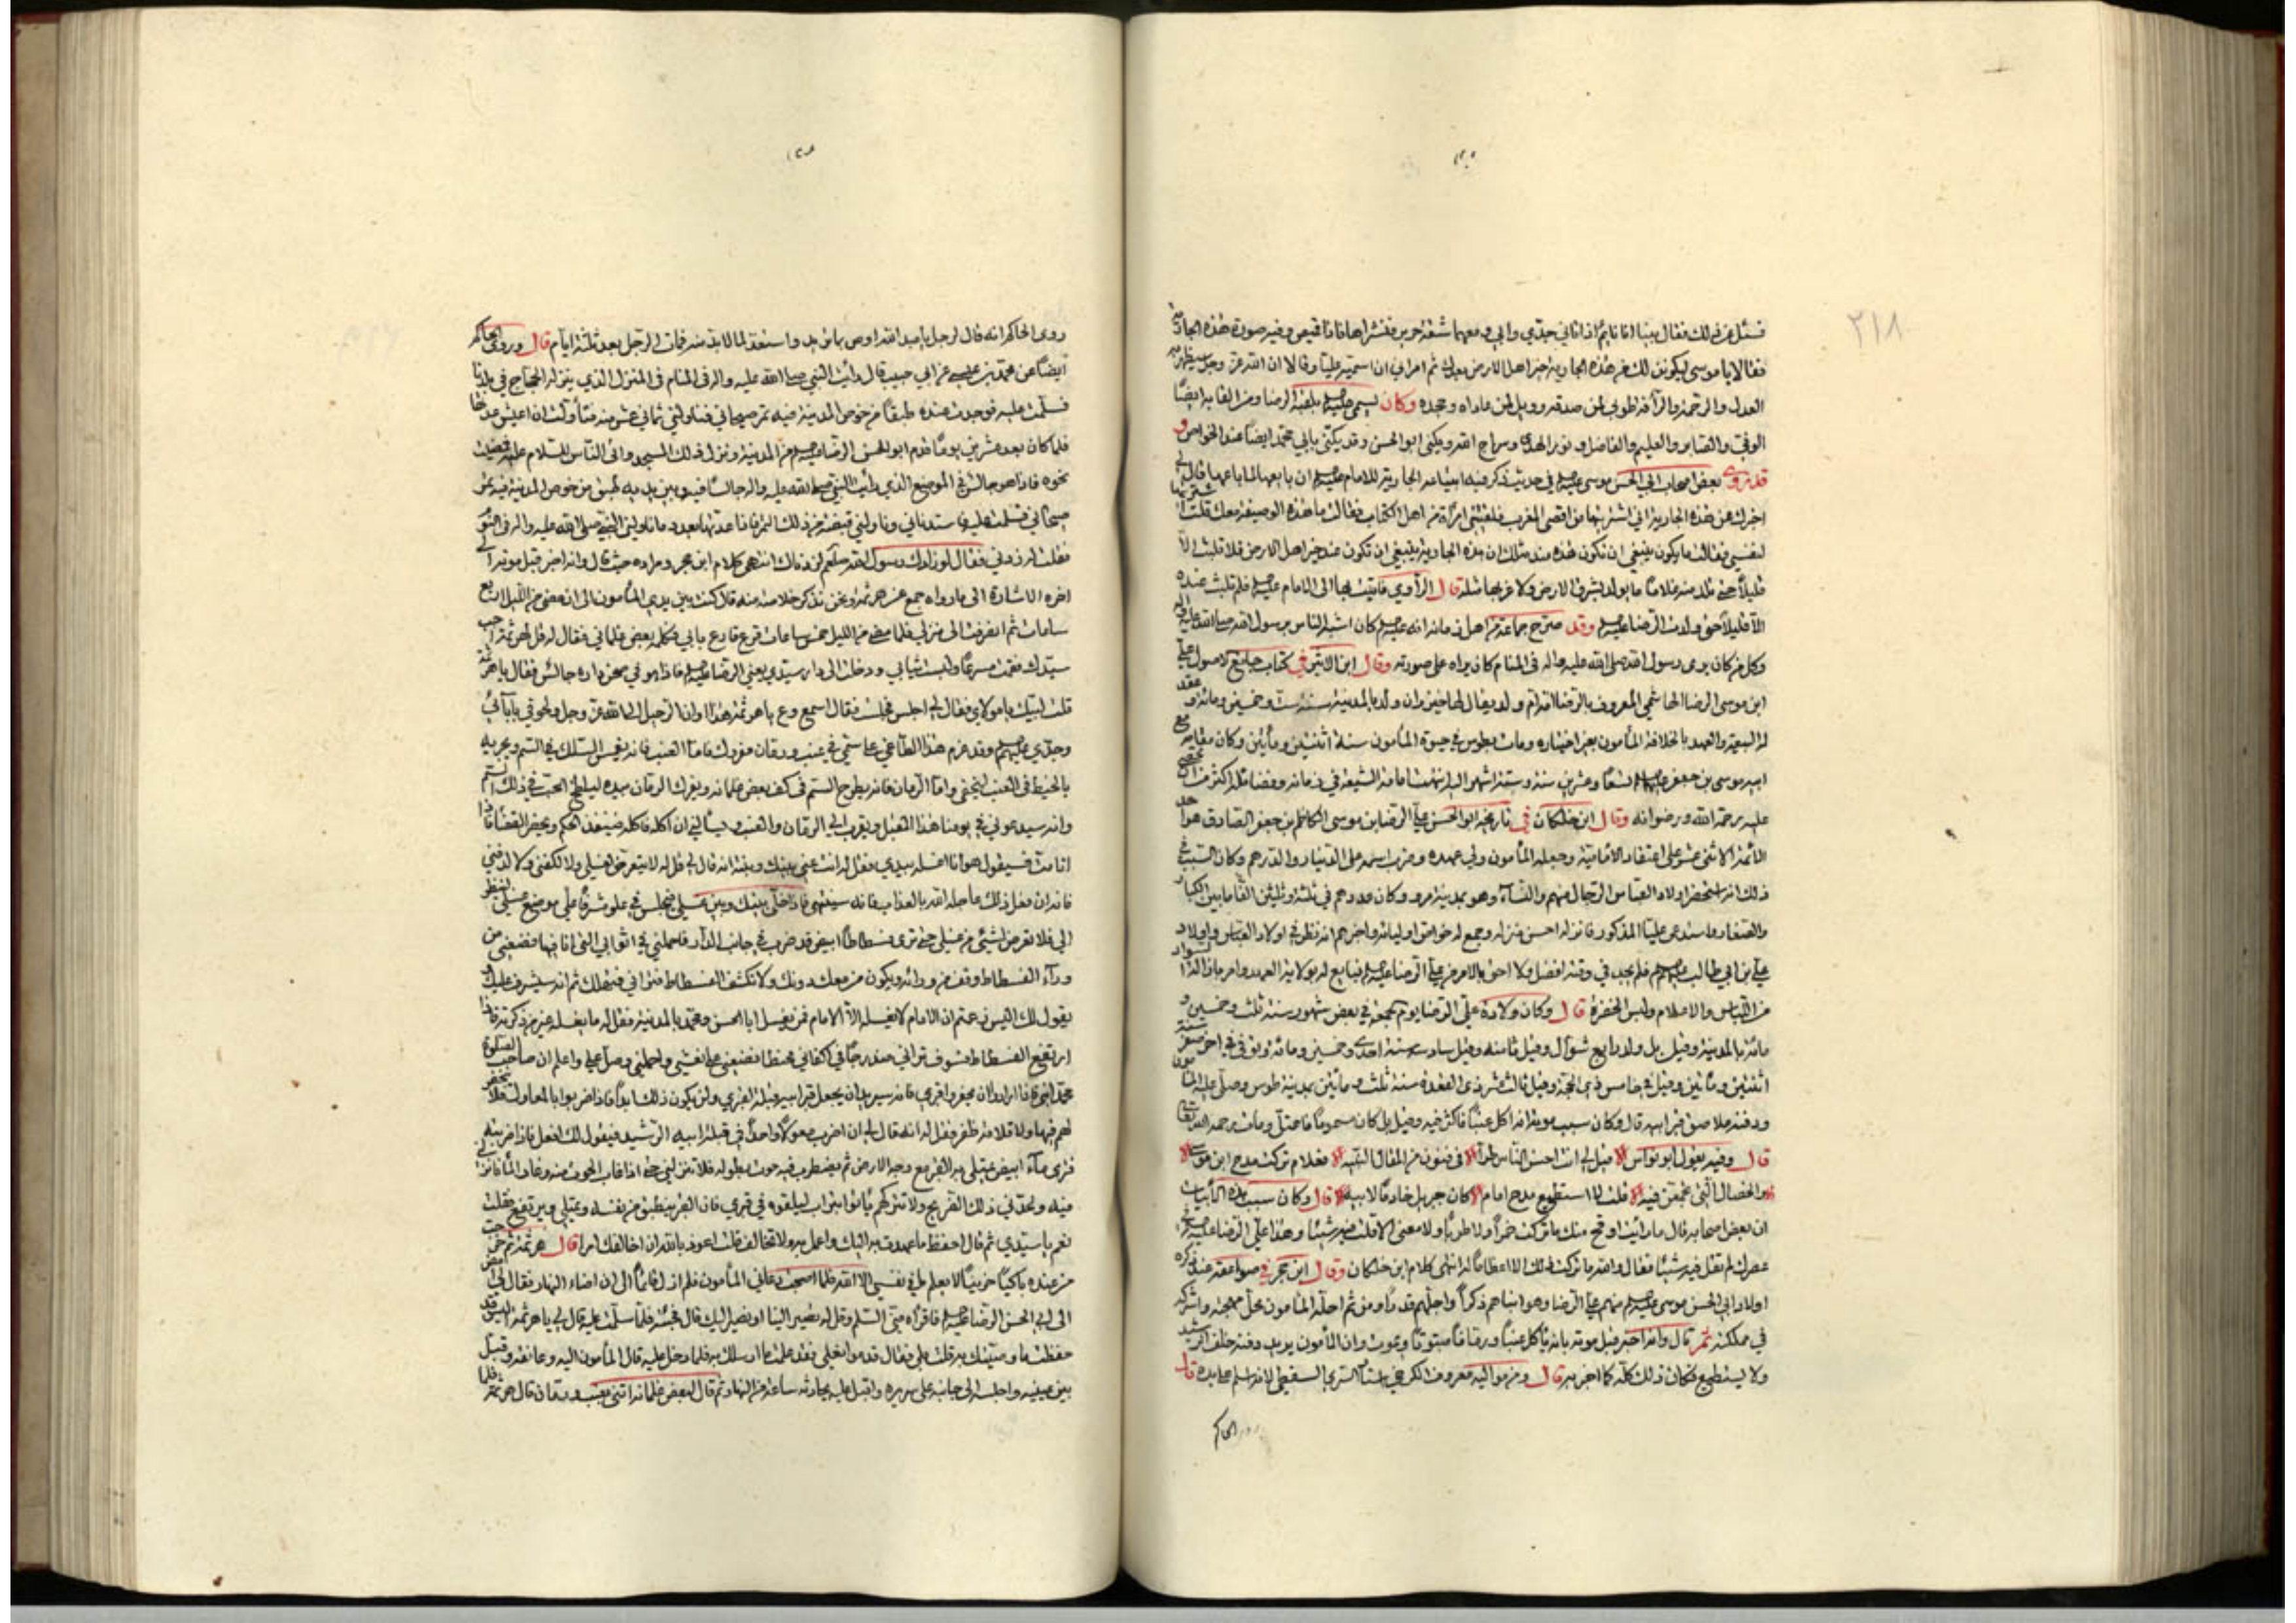 ٢١٨
فسئل عن ذلك فقال بينا انا نائم اذ اتاني جدّي وابي ومعهما شقة حرير فنشراها فاذا قميص وفيه صورة هذه الجارية
فقالا يا موسى ليكونن لك من هذه الجارية خير اهل الارض بعدك ثم امراني ان اسميه عليّا وقالا ان الله عزّ وجل سيظهر به
العدل والرحمة والرأفة طوبى لمن صدقه وويل لمن عاداه وجحده وكان يسمى بلقبه الرضا ومن القابه ايضًا
الوفيّ والصابر والفاضل ونور الهدى وسراج الله ويكنى ابو الحسن وقد يكنى بابي محمد ايضًا عند الخواص و
قد روى بعض اصحاب ابي الحسن موسى في حديث ذكر فيه الجارية للامام ان بايعها لما باعها قال لي
اخبرك عن هذه الجارية اني اشتريتها من اقصى المغرب فلقيتني امرأة من اهل الكتاب فقالت ما هذه الوصيفة معك قلت اشتريتها
لنفسي فقالت ما يكون ينبغي ان تكون هذه عند مثلك ان هذه الجارية ينبغي ان تكون عند خير اهل الارض فلا تلبث الاّ
قليلاً حتى تلد منه غلامًا ما يولد بشرق الارض ولا غربها مثله قال الراوي فاتيت بها الى الامام فلم تلبث عنده
الاّ قليلاً حتى ولدت الرضا وقد صرّح جماعة من اهل زمانه انه كان اشبه الناس برسول الله صلى الله عليه واله
وكل من كان يرى رسول الله صلى الله عليه واله في المنام كان يراه على صورته وقال ابن الاثير في كتاب جامع الاصول علي
ابن موسى الرضا الهاشمي المعروف بالرضا امه ام ولد يقال لها خيزران ولد بالمدينة سنة ست وخمسين ومائة وعقد
له البيعة والعهد بالخلافة المأمون بغير اختياره ومات بطوس في حيوة المأمون سنة اثنتين ومأتين وكان مقامه مع
ابيه موسى بن جعفر تسعًا وعشرين سنة وستة اشهر اليه انتهت امامة الشيعة في زمانه وفضائله اكثر من ان تحصى
عليه رحمة الله ورضوانه وقال ابن خلكان في تاريخه ابو الحسن علي الرضا بن موسى الكاظم بن جعفر الصادق هو احد
الائمة الاثنى عشر على اعتقاد الامامية وجعله المأمون ولي عهده وضرب اسمه على الدينار والدرهم وكان السبب في
ذلك انه استحضر اولاد العباس الرجال منهم والنساء وهو بمدينة مرو وكان عددهم في ثلثة وثلثين الفًا ما بين الكبار
والصغار واستدعى عليّا المذكور فانزله احسن منزلة وجمع له خواص اوليائه واخبرهم انه نظر في اولاد العباس واولاد
علي بن ابي طالب فلم يجد في وقته افضل ولا احق بالامر من علي الرضا فبايع له بولاية العهد وامر بازالة السواد
من اللباس والاعلام ولبس الخضرة قال وكان ولادة علي الرضا يوم الجمعة في بعض شهور سنة ثلث وخمسين و
مائة بالمدينة وقيل بل ولد سابع شوال وقيل ثامنه وقيل سادسه سنة احدى وخمسين ومائة وتوفى في اخر صفر سنة
اثنتين ومأتين وقيل في خامس ذي الحجة وقيل ثالث عشر ذي القعدة سنة ثلث ومأتين بمدينة طوس وصلّى عليه المأمون
ودفنه ملاصق قبر ابيه قال وكان سبب موته انه اكل عنبًا فاكثر فيه وقيل بل كان مسمومًا فاعتل ومات رحمه الله تعالى
قال وفيه يقول ابو نواس قيل لي انت احسن الناس طرّا في فنون من المقال النبيه فعلام تركت مدح ابن موسى
والخصال التي تجمعن فيه قلت لا استطيع مدح امام كان جبريل خادمًا لابيه قال وكان سبب هذه الابيات
ان بعض اصحابه قال ما رايت اوقح منك ما تركت خمرًا ولا طردًا ولا معنى الا قلت فيه شيئا وهذا علي الرضا في
عصرك لم تقل فيه شيئا فقال والله ما تركت ذلك الا اعظامًا له انتهى كلام ابن خلكان وقال ابن حجر في صواعقه عند ذكره
اولاد ابي الحسن موسى منهم علي الرضا وهو انبههم ذكرًا واجلّهم قدرًا ومن ثم احلّه المأمون محلّ مهجته واشركه
في مملكته ثم قال واخبر قبل موته بانه يأكل عنبًا ورمانًا مبثوثًا ويموت وان المأمون يريد دفنه خلف الرشيد
ولا يستطيع فكان ذلك كلّه كما اخبر به قال ومن مواليه معروف الكرخي استاد السري السقطي لانه اسلم على يده قال
روى الحاكم
روى الحاكم انه قال لرجل يا عبد الله اوص بما تريد واستعد لما لا بد منه فمات الرجل بعد ثلثة ايام قال وروى الحاكم
ايضًا عن محمد بن عيسى عن ابي حبيب قال رأيت النبي صلى الله عليه واله في المنام في المنزل الذي ينزله الحجاج في بلدنا
فسلّمت عليه فوجدت عنده طبقًا من خوص المدينة فيه تمر صيحاني فناولني ثماني عشر منه فتأولت ان اعيش عدتها
فلما كان بعد عشرين يومًا قدم ابو الحسن الرضا من المدينة ونزل ذلك المسجد واتى الناس للسلام عليه فمضيت
نحوه فاذا هو جالس في الموضع الذي رأيت النبي صلى الله عليه واله جالسًا فيه وبين يديه طبق من خوص المدينة فيه تمر
صيحاني فسلمت عليه فاستدناني وناولني قبضة من ذلك التمر فاذا عدتها بعدد ما ناولني النبي صلى الله عليه واله في النوم
فقلت له زدني فقال لو زادك رسول الله صلعم لزدناك انتهى كلام ابن حجر ومراده حيث قال وانه اخبر قبل موته الى
اخره الاشارة الى ما رواه جمع عن هرثمة ونحن نذكر خلاصته منه قال كنت بين يدي المأمون الى ان مضى من الليل اربع
ساعات ثم انصرفت الى منزلي فلما مضى من الليل ساعات قرع قارع بابي فكلّمه بعض غلماني فقال له قل لهرثمة اجب
سيدك فقمت مسرعًا ولبست ثيابي ودخلت الى دار سيدي يعني الرضا فاذا هو في صحن داره جالس فقال يا هرثمة
قلت لبيك يا مولاي فقال لي اجلس فجلست فقال اسمع وع يا هرثمة هذا اوان الرحيل الى الله عزّ وجل ولحوقي بآبائي
وجدّي وقد عزم هذا الطاغي على سمّي في عنب ورمان مفروك فاما العنب فانه يغمس السلك في السم ويجريه
بالخيط في العنب ليخفى واما الرمان فانه يطرح السم في كف بعض غلمانه ويفرك الرمان بيده ليلطخ الحب في ذلك السم
وانه سيدعوني في يومنا هذا المقبل ويقرب الي الرمان والعنب ويسألني ان اكله فاكله ثم ينفذ الحكم ويحضر القضاء فاذا
انا متّ فسيقول هو انا اغسله بيدي فقل له انت عني بينك وبينه انه قال لي قل له لا يتعرض لغسلي ولا لكفني ولا لدفني
فانه ان فعل ذلك عاجله الله بالعذاب فانه سينتهي فاذا خلّى بينك وبين غسلي فيجلس في علو مشرفًا على موضع غسلي لينظر
الي فلا تعرض لشيء من غسلي حتى ترى فسطاطًا ابيض قد ضرب في جانب الدار فاحملني في اثوابي التي انا فيها فضعني من
وراء الفسطاط وقف من ورائه ويكون من معك دونك ولا تكشف الفسطاط فتراني فتهلك ثم انه سيشرف عليك و
يقول لك اليس زعمتم ان الامام لا يغسله الا الامام فمن يغسل ابا الحسن ومحمد بالمدينة فقل له ما يغسله غير من ذكرته فاذا
ارتفع الفسطاط فسوف تراني مدرجًا في اكفاني محنطًا فضعني على نعشي واحملني وصلّ علي واعلم ان صاحب الصلوة
محمد ابني فاذا اراد ان يحفر قبري فانه سيريد ان يجعل قبر ابيه قبلة لقبري ولن يكون ذلك ابدًا فاذا ضربوا بالمعاول فلا يحفر
لهم فيها ولا قلامة ظفر فقل له انه قال لي ان اضرب معولاً واحدًا في قبلة ابيه الرشيد فيقول لك افعل فاذا ضربته
فترى ماء ابيض يمتلي به القبر مع وجه الارض ثم يضطرب فيه حوت بطوله فلا تنزلني حتى اذا غاب الحوت منه وغار الماء فانزلني
فيه ولحدني في ذلك الضريح ولا تتركهم يأتوا بتراب ليلقوه في قبري فان القبر ينطبق من نفسه ويمتلي ويرتفع فقلت
نعم يا سيدي ثم قال احفظ ما عهدت به اليك واعمل به ولا تخالف قلت اعوذ بالله ان اخالفك امرا قال هرثمة ثم خرجت
من عنده باكيًا حزينًا لا يعلم ما في نفسي الا الله فلما اصبحت دعاني المأمون فلم ازل قائمًا الى ان اضاء النهار فقال لي امض
الى ابي الحسن الرضا فاقرأه مني السلام وقل له تصير الينا او نصير اليك قال فجئته فلما سلّمت عليه قال لي يا هرثمة اليس قد
حفظت ما وصيتك به قلت بلى فقال قدموا نعلي فقد علمت ما ارسلك به فلما دخل عليه قام المأمون اليه وعانقه وقبّل
بين عينيه واجلسه الى جانبه على سريره واقبل عليه يحادثه ساعة من النهار ثم قال لبعض غلمانه ائتني بعنب ورمان قال هرثمة فلما